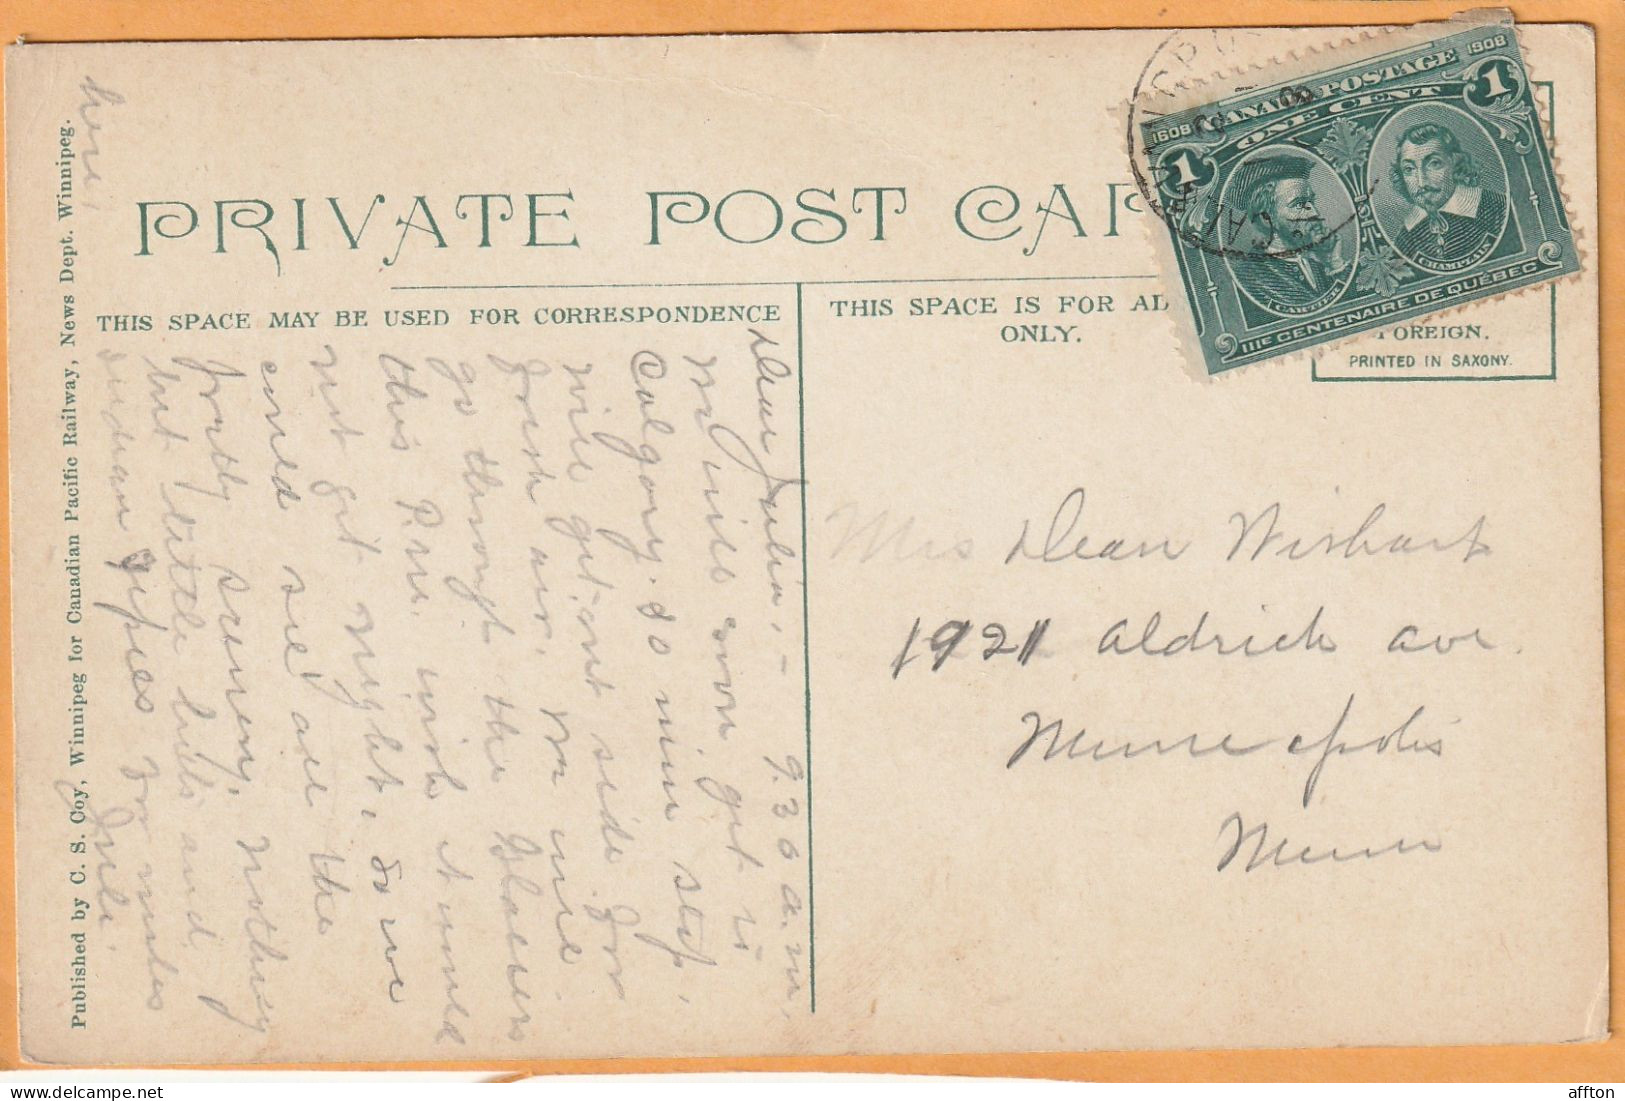 PRIVATE POST CAR
THIS SPACE MAY BE USED FOR CORRESPONDENCE
THIS SPACE IS FOR AD
ONLY.
FOREIGN.
PRINTED IN SAXONY.
1608 CANADA POSTAGE 1908
ONE CENT
1 1
CARTIER CHAMPLAIN
IIIE CENTENAIRE DE QUÉBEC
Published by C. S. Coy, Winnipeg for Canadian Pacific Railway, News Dept. Winnipeg.
Mrs Dean Wishart
1921 Aldrich Ave.
Minneapolis
Minn
9.30 a.m.
Dear Julia, -
We will soon get in
Calgary. 20 min stop,
will get out side for
fresh air. We
go through the Glaciers
this P.M. wish it would
not get night, so we
could see all the
pretty scenery. Nothing
but little hills and
indian for miles
here,